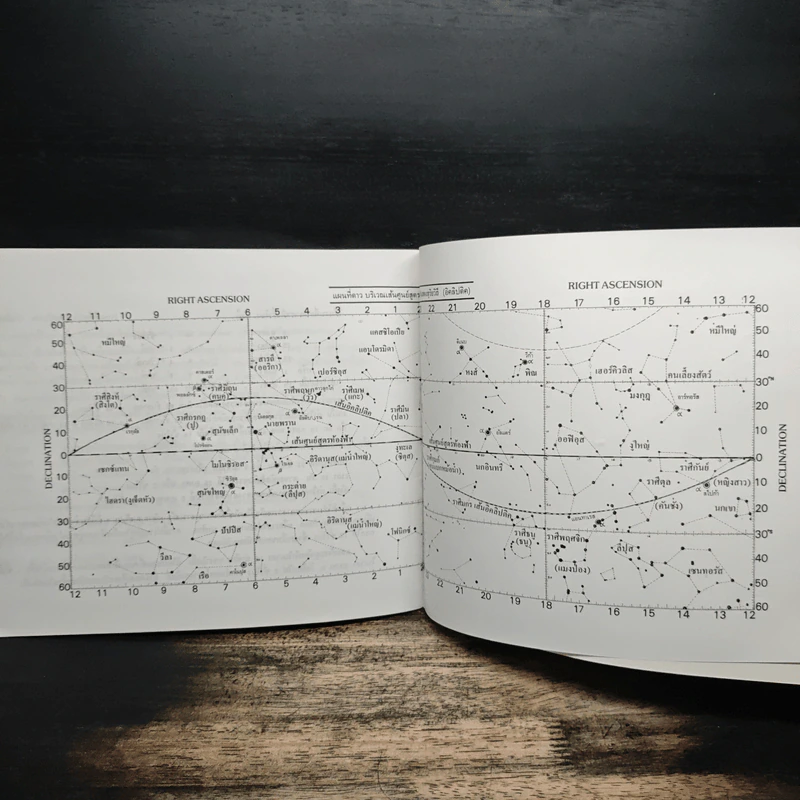 RIGHT ASCENSION
แผนที่ดาว บริเวณเส้นศูนย์สูตร
(อิคลิปติค)
RIGHT ASCENSION
12 11 10 9 8 7 6 5 4 3 2 1
22 21 20 19 18 17 16 15 14 13 12
60
50
40
30
20
10
0
10
20
30
40
50
60
DECLINATION
หมีใหญ่
สารถี
(ออริกา)
เปอร์ซิอุส
แคสซิโอเปีย
แอนโดรมิดา
ราศีสิงห์
(สิงโต)
ราศีมิถุน
(คนคู่)
ราศีกรกฎ
(ปู)
สุนัขเล็ก
ราศีพฤษภ
(วัว)
ราศีเมษ
(แกะ)
ราศีมีน
(ปลา)
นายพราน
เส้นอิคลิปติค
เส้นศูนย์สูตรท้องฟ้า
เซคซ์แทน
ไฮดรา(งูเจ็ดหัว)
โมโนซิรอส
สุนัขใหญ่
กระต่าย
(ลีปุส)
อิริดานุส(แม่น้ำใหญ่)
งูทะเล
(ซีตุส)
ปัปปิส
วีลา
เรือ
อิริดานุส
(แม่น้ำใหญ่)
โฟนิกซ์
12 11 10 9 8 7 6 5 4 3 2 1
หงส์
พิณ
เฮอร์คิวลิส
มงกุฎ
คนเลี้ยงสัตว์
หมีใหญ่
ออฟิอุส
งูใหญ่
เส้นศูนย์สูตรท้องฟ้า
นกอินทรี
ราศีมกร เส้นอิคลิปติค
ราศีธนู
(ธนู)
ราศีพฤศจิก
(แมงป่อง)
ราศีตุล
(คันชั่ง)
ราศีกันย์
(หญิงสาว)
นกเขา
ลีปุส
เซนทอรัส
60
50
40
30
20
10
0
10
20
30
40
50
60
DECLINATION
21 20 19 18 17 16 15 14 13 12